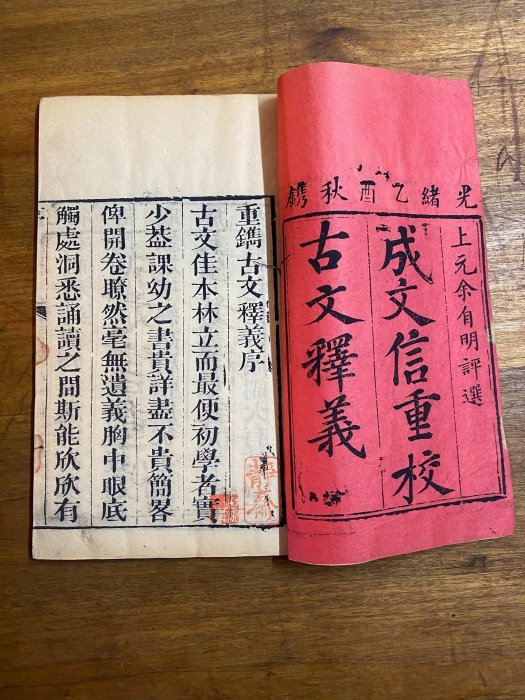 光緒乙酉秋鐫
上元余自明評選
成文信重校
古文釋義
重鐫古文釋義序
古文佳本林立而最便初學者實
少葢課幼之書貴詳盡不貴簡畧
俾開卷瞭然毫無遺義胸中眼底
觸處洞悉誦讀之間斯能欣欣有